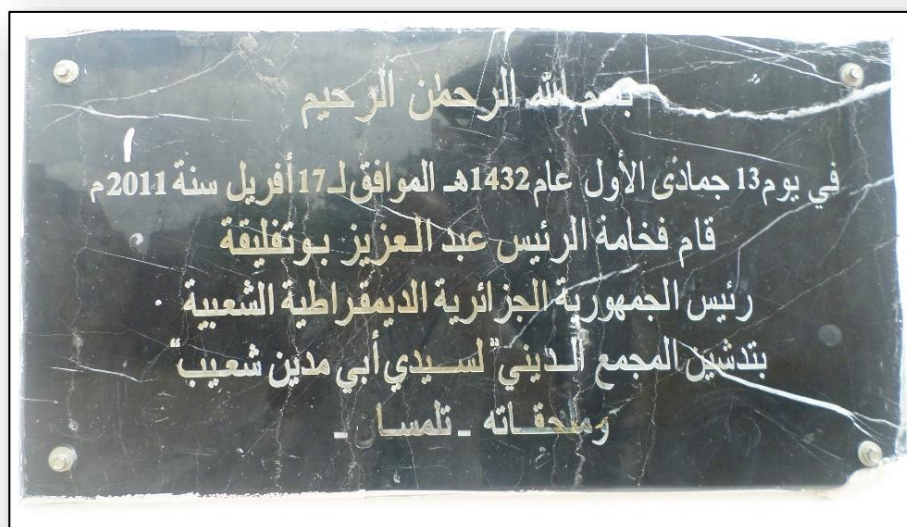 بسم الله الرحمٰن الرحيم
في يوم 13 جمادى الأول عام 1432هـ الموافق لـ 17 أفريل سنة 2011م
قام فخامة الرئيس عبد العزيز بوتفليقة
رئيس الجمهورية الجزائرية الديمقراطية الشعبية
بتدشين المجمع الديني "لسيدي أبي مدين شعيب"
وملحقاته - تلمسان -